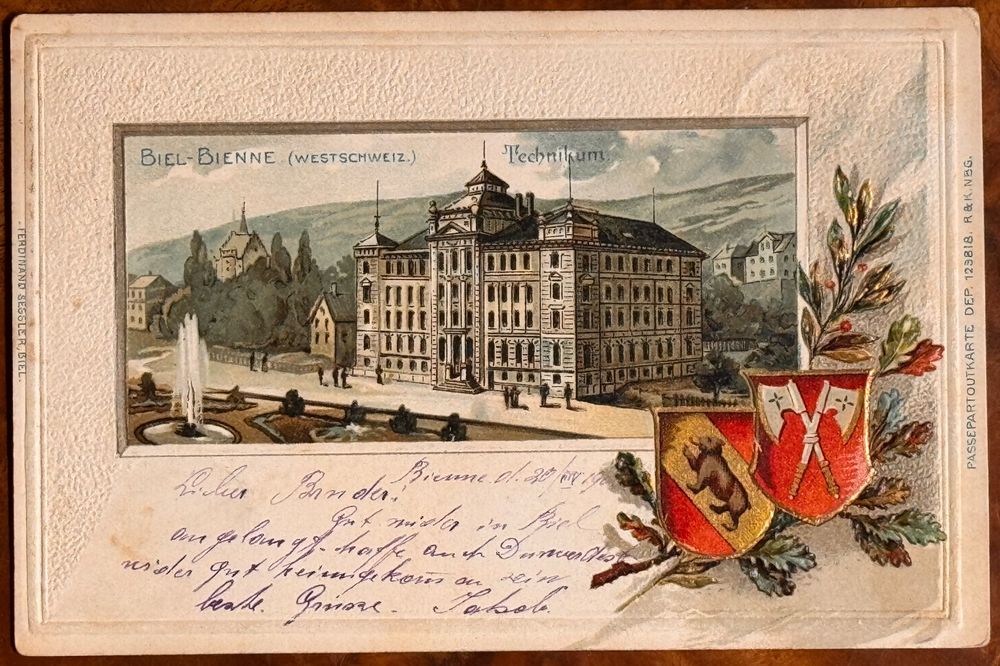 BIEL-BIENNE (WESTSCHWEIZ.) Technikum.
FERDINAND SESSLER, BIEL.
PASSEPARTOUTKARTE DEP. 123818. R & K. NBG.
Bienne d. 20/
Lieber Bruder!
Gut wider in Biel
angelangt. hoffe auch Du werdest
wider gut heimgekom̅en sein
beste Grüsse. Jakob.